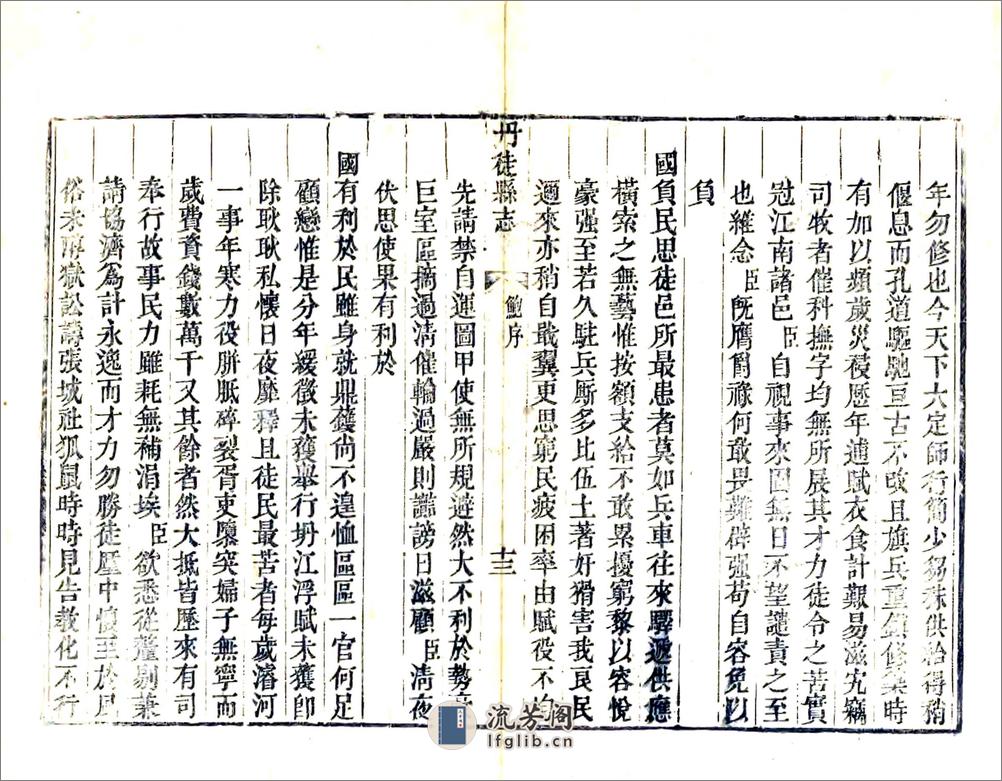 年勿修也今天下大定師行簡少芻秣供給得稍
偃息而孔道驅馳亘古不改且旗兵重鎮修築時
有加以頻歲災祲歷年逋賦衣食計艱易滋宄竊
司牧者催科撫字均無所展其才力徒令之苦實
冠江南諸邑臣自視事來固無日不望譴責之至
也維念臣旣膺爵祿何敢畏難辟强苟自容免以
負
國負民思徒邑所最患者莫如兵車往來驛遞供應
橫索之無藝惟按額支給不敢累擾窮黎以容悅
豪强至若久駐兵厮多比伍土著奸猾害我良民
邇來亦稍自戢翼更思窮民疲困率由賦役不均
先請禁自運圖甲使無所規避然大不利於勢
巨室區摘過清催輸過嚴則讟謗日滋顧臣清夜
伏思使果有利於
國有利於民雖身就鼎鑊尙不遑恤區區一官何足
顧戀惟是分年緩徵未獲舉行坍江浮賦未獲卽
除耿耿私懷日夜靡釋且徒民最苦者每歲濬河
一事年寒力役胼胝碎裂胥吏隳突婦子無寧而
歲費貲錢數萬千又其餘者然大抵皆歷來有司
奉行故事民力雖耗無補涓埃臣欲悉從釐剔兼
請協濟爲計永逸而才力勿勝徒歷中懷至於風
俗未淳獄訟譸張城社狐鼠時時見告敎化不行
丹徒縣志
鮑序
十三
流芳閣
lfglib.cn